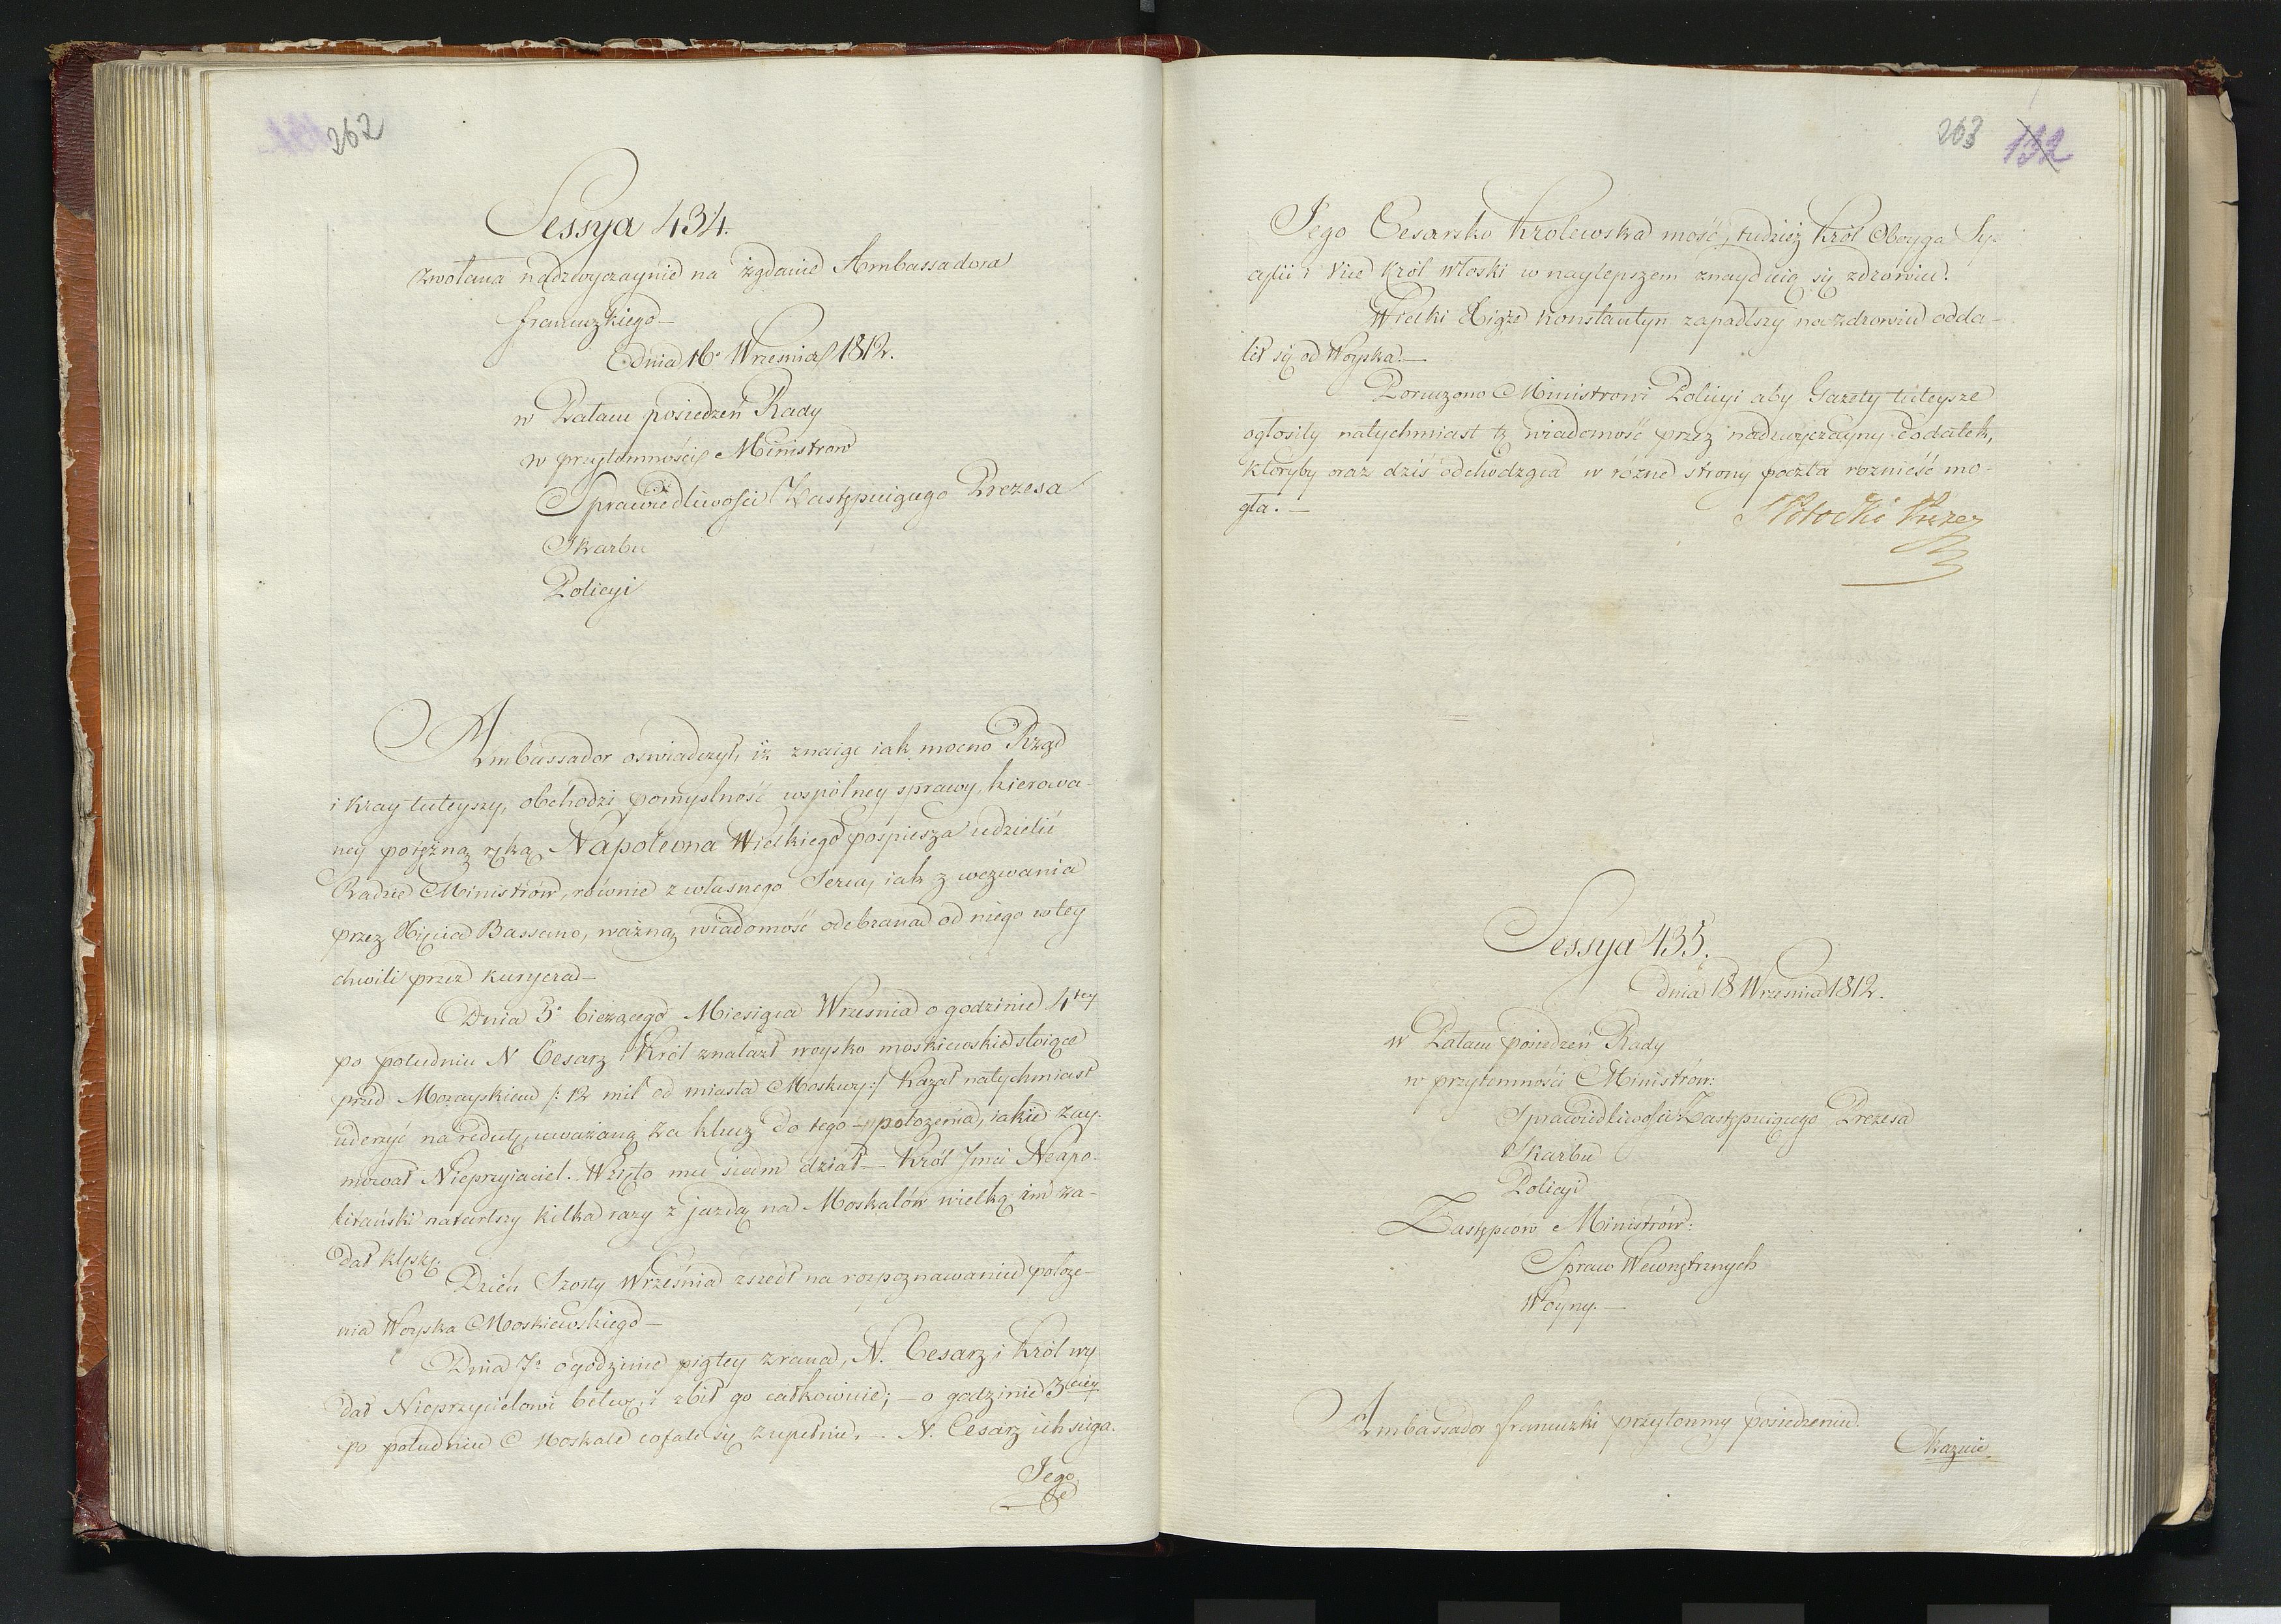 262
Sessya 434.
zwołana nadzwyczaynie na żądanie Ambassadora
francuzkiego —
dnia 16° Wrzesnia 1812.
w Pałacu posiedzeń Rady
w przytomności Ministrow
Sprawiedliwości Zastępuiącego Prezesa
Skarbu
Policyi
Ambassador oswiadczył, iż znaiąc iak mocno Rząd
i kray tuteyszy, obchodzi pomyslność wspólney sprawy, kierowa-
ney potężną ręką Napoleona Wielkiego pośpiesza udzielić
Radzie Ministrów, równie z własnego Serca, iak z wezwania
przez Xięcia Bassano, ważną wiadomość odebraną od niego w tey
chwili przez kuryera —
Dnia 5° bieżącego Miesiąca Wrzesnia o godzinie 4tey
po południu N Cesarz i Król znalazł woysko moskiewskie stoiące
przed Mozayskiem /: 12 mil od miasta Moskwy :/ Kazał natychmiast
uderzyć na redutę, uważaną za klucz do tego położenia, iakie zay-
mował Nieprzyiaciel. Wzięto mu siedm dział — Król Jmci Neapo-
litański natarłszy kilka razy z jazdą na Moskalów wielką im za-
dał klęskę.
Dzień Szosty Wrzesnia zszedł na rozpoznawaniu położe-
nia Woyska Moskiewskiego —
Dnia 7° o godzinie piątey zrana, N. Cesarz i Król wy-
dał Nieprzyielowi bitwę, i zbił go całkowicie; — o godzinie 3ciey
po południu Moskale cofali się zupełnie. — N. Cesarz ich ściga.
Jego
263 132
Jego Cesarsko Krolewska mość, tudzież Król Oboyga Sy-
cylii i Vice Król Włoski w naylepszem znayduią się zdrowiu.
Wielki Xiąże Konstantyn zapadłszy na zdrowiu odda-
lił się od Woyska. —
Poruczono Ministrowi Policyi aby Gazety tuteysze
ogłosiły natychmiast tę wiadomość przez nadzwyczayny dodatek,
któryby oraz dziś odchodząca w różne strony poczta roznieść mo-
gła. —
Potocki Prezes
Sessya 435.
Dnia 18 Wrzesnia 1812.
w Pałacu posiedzeń Rady
w przytomności Ministrów:
Sprawiedliwości Zastępuiącego Prezesa
Skarbu
Policyi
Zastępców Ministrów:
Spraw Wewnętrznych
Woyny. —
Ambassador francuzki przytomny posiedzeniu.